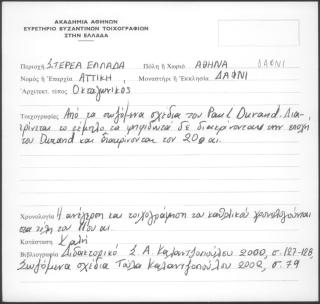 ΑΚΑΔΗΜΙΑ ΑΘΗΝΩΝ
ΕΥΡΕΤΗΡΙΟ ΒΥΖΑΝΤΙΝΩΝ ΤΟΙΧΟΓΡΑΦΙΩΝ
ΣΤΗΝ ΕΛΛΑΔΑ
Περιοχή ΣΤΕΡΕΑ ΕΛΛΑΔΑ Πόλη ή Χωριό ΑΘΗΝΑ ΔΑΦΝΙ
Νομός ή Ἐπαρχία ΑΤΤΙΚΗ Μοναστήρι ἤ Ἐκκλησία ΔΑΦΝΙ
Ἀρχιτεκτ. τύπος Οκταγωνικός
Τοιχογραφίες Από τα σωζόμενα σχέδια του Paul Durand. Δια-
κρίνεται το τέμπλο τα ψηφιδωτά δε διακρίνονταν στην εποχή
του Durand και διακρίνονται τον 20ο αι.
Χρονολογία Η ανέγερση και τοιχογράφηση του καθολικού χρονολογούνται
στα τέλη του 11ου αι.
Κατάσταση Καλή
Βιβλιογραφία Διδακτορικό Σ. Α. Καλαντζοπούλου 2000, σ. 127-128,
Σωζόμενα σχέδια Τούλα Καλαντζοπούλου 2002, σ. 79